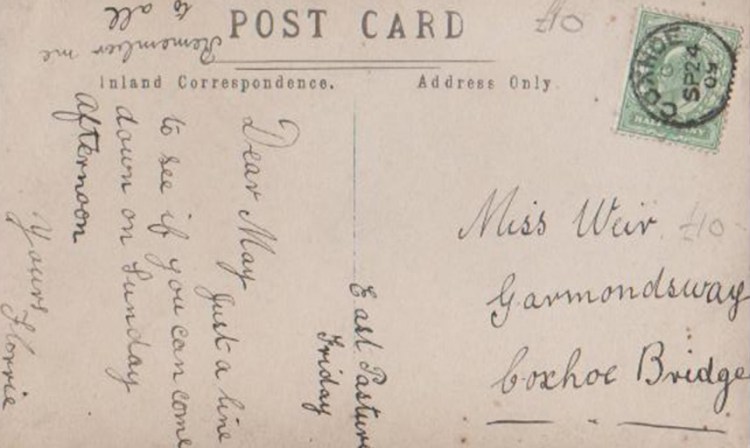 POST CARD
Inland Correspondence.
Address Only.
£10
COXHOE
6
SP 24
09
HALFPENNY
Miss Weir
£10
Garmondsway
Coxhoe Bridge
East Pasture
Friday
Dear May
Just a line
to see if you can come
down on Sunday
afternoon
Yours
Florrie
Remember me
to all